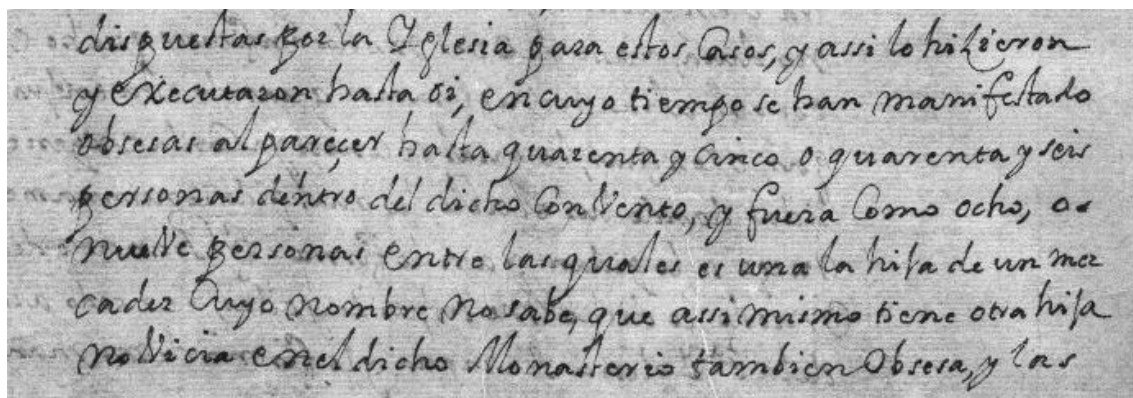 dispuestas por la Iglesia para estos Casos, y assi lo hiZieron
y executaron hasta oi, en cuyo tiempo se han manifestado
obsesas al pareçer hasta quarenta y Cinco o quarenta y seis
personas dentro del dicho Convento, y fuera Como ocho, o
nueve personas entre las quales es una la hija de un mer
cader Cuyo nombre no sabe, que assimismo tiene otra hija
noVicia en el dicho Monasterio tambien Obsesa, y las